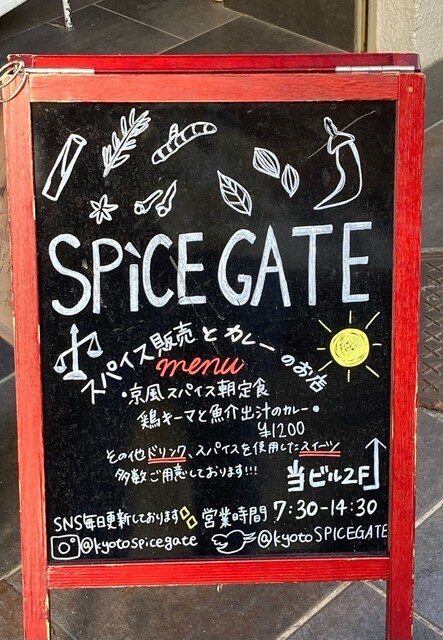 SPiCE GATE
スパイス販売とカレーのお店
menu
・京風スパイス朝定食
鶏キーマと魚介出汁のカレー・
¥1200
その他ドリンク、スパイスを使用したスイーツ
多数ご用意しております!!!
当ビル2F
SNS毎日更新しております
営業時間 7:30-14:30
@kyotospicegate
@kyotoSPICEGATE